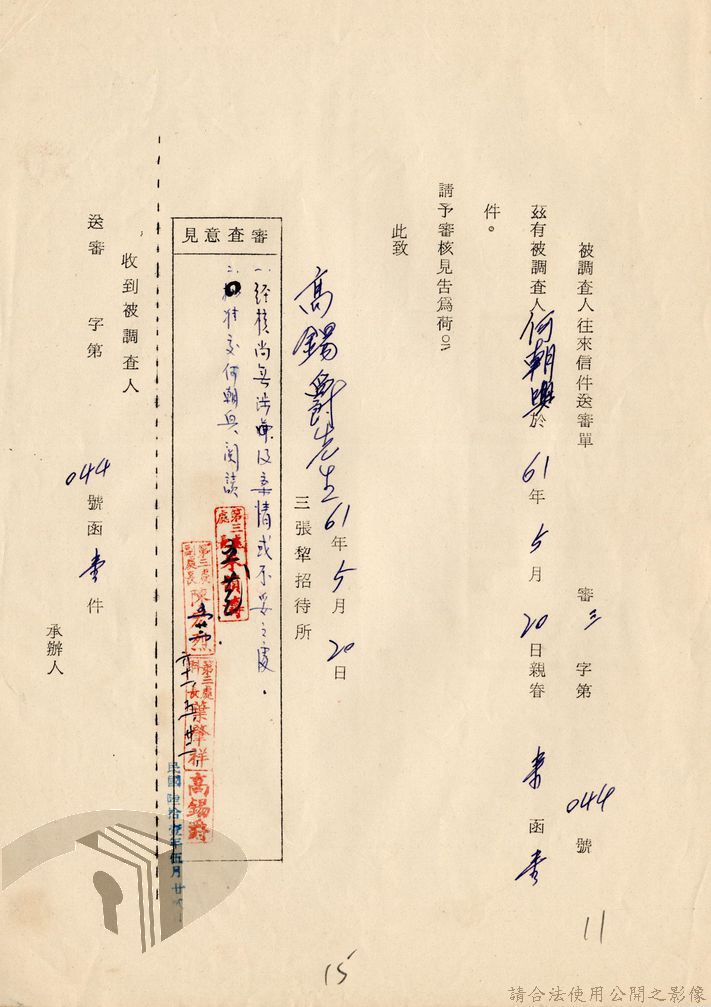 被調查人往來信件送審單
審三字第044號
茲有被調查人何朝興於61年5月20日親眷來函壹
件。
請予審核見告為荷。
此致
高錫爵先生
三張犂招待所
61年5月20日
審查意見
一、經核尚無涉嫌及案情或不妥之處。
二、批准交何朝興閱讀
第三處
第三處副處長陳
第三處科長葉肇祥
高錫爵
六十一、五、廿二
民國陸拾壹年伍月廿
收到被調查人
送審字第044號函壹件
承辦人
11
15
請合法使用公開之影像